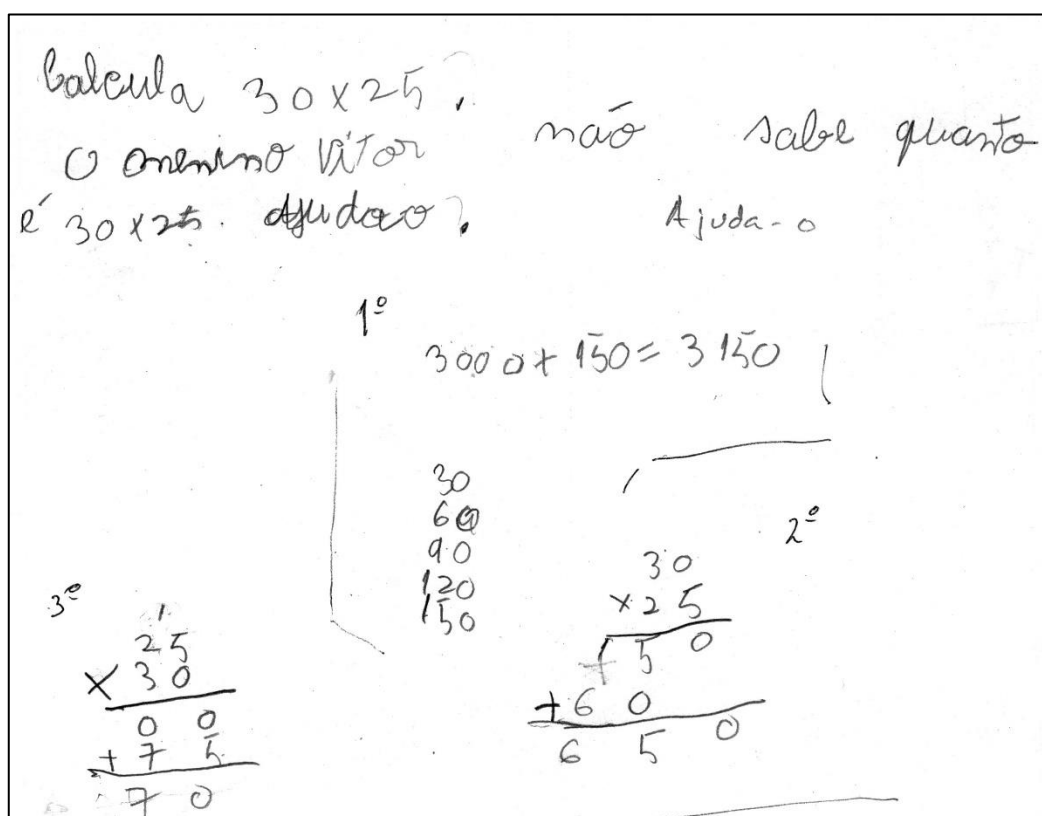 Calcula 30x25.
O menino Vitor não sabe quanto
é 30x25. Ajudao?
Ajuda-o
1º
3000+150=3150
30
60
90
120
150
2º
30
x25
150
+60
650
3º
1
25
x30
00
+75
70